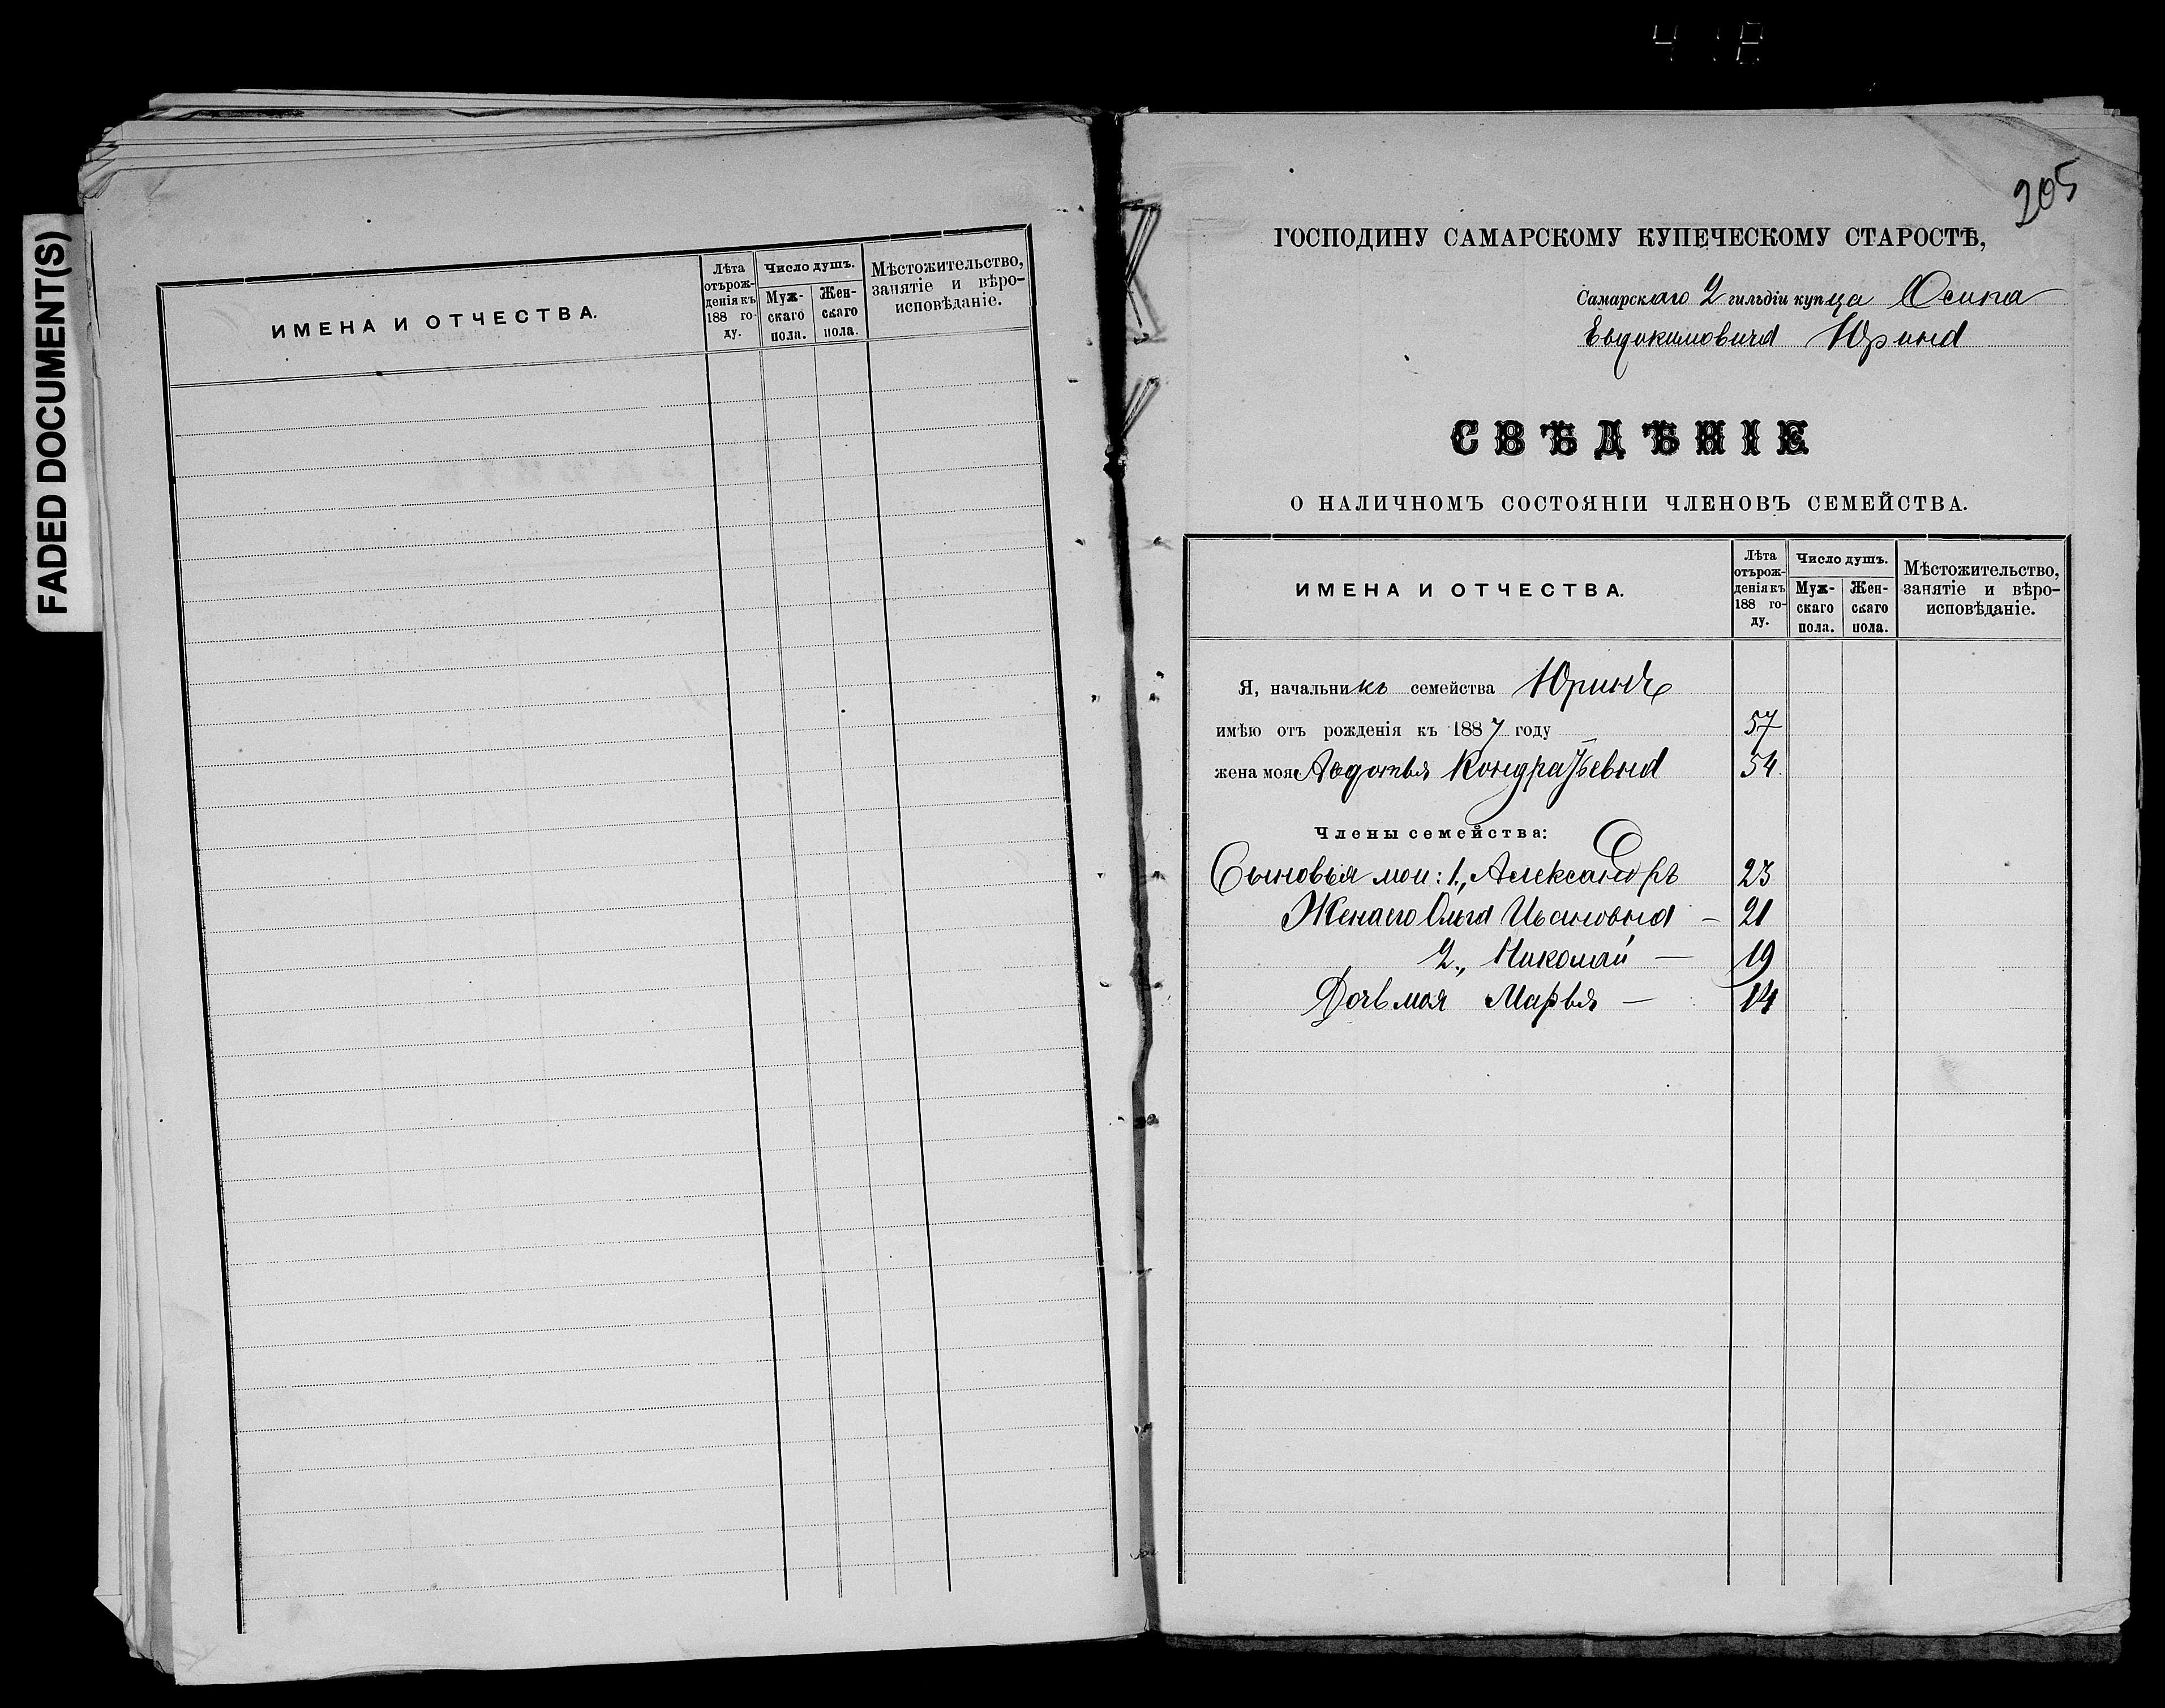 418
FADED DOCUMENT(S)
ИМЕНА И ОТЧЕСТВА.
Лѣта
отъ рож-
денія къ
188 го-
ду.
Число душъ.
Муж-
скаго
пола.
Жен-
скаго
пола.
Мѣстожительство,
занятіе и вѣро-
исповѣданіе.
205
ГОСПОДИНУ САМАРСКОМУ КУПЕЧЕСКОМУ СТАРОСТѢ,
Самарскаго 2 гильдіи купца Осипа
Евдокимовича Юрина
СВѢДѢНІЕ
О НАЛИЧНОМЪ СОСТОЯНІИ ЧЛЕНОВЪ СЕМЕЙСТВА.
ИМЕНА И ОТЧЕСТВА.
Лѣта
отъ рож-
денія къ
188 го-
ду.
Число душъ.
Муж-
скаго
пола.
Жен-
скаго
пола.
Мѣстожительство,
занятіе и вѣро-
исповѣданіе.
Я, начальникъ семейства Юринъ
имѣю отъ рожденія къ 1887 году 57
жена моя Авдотья Кондратьевна 54.
Члены семейства:
Сыновья мои: 1., Александръ 23
Жена его Ольга Ивановна — 21
2., Николай — 19
Дочь моя Марья — 14